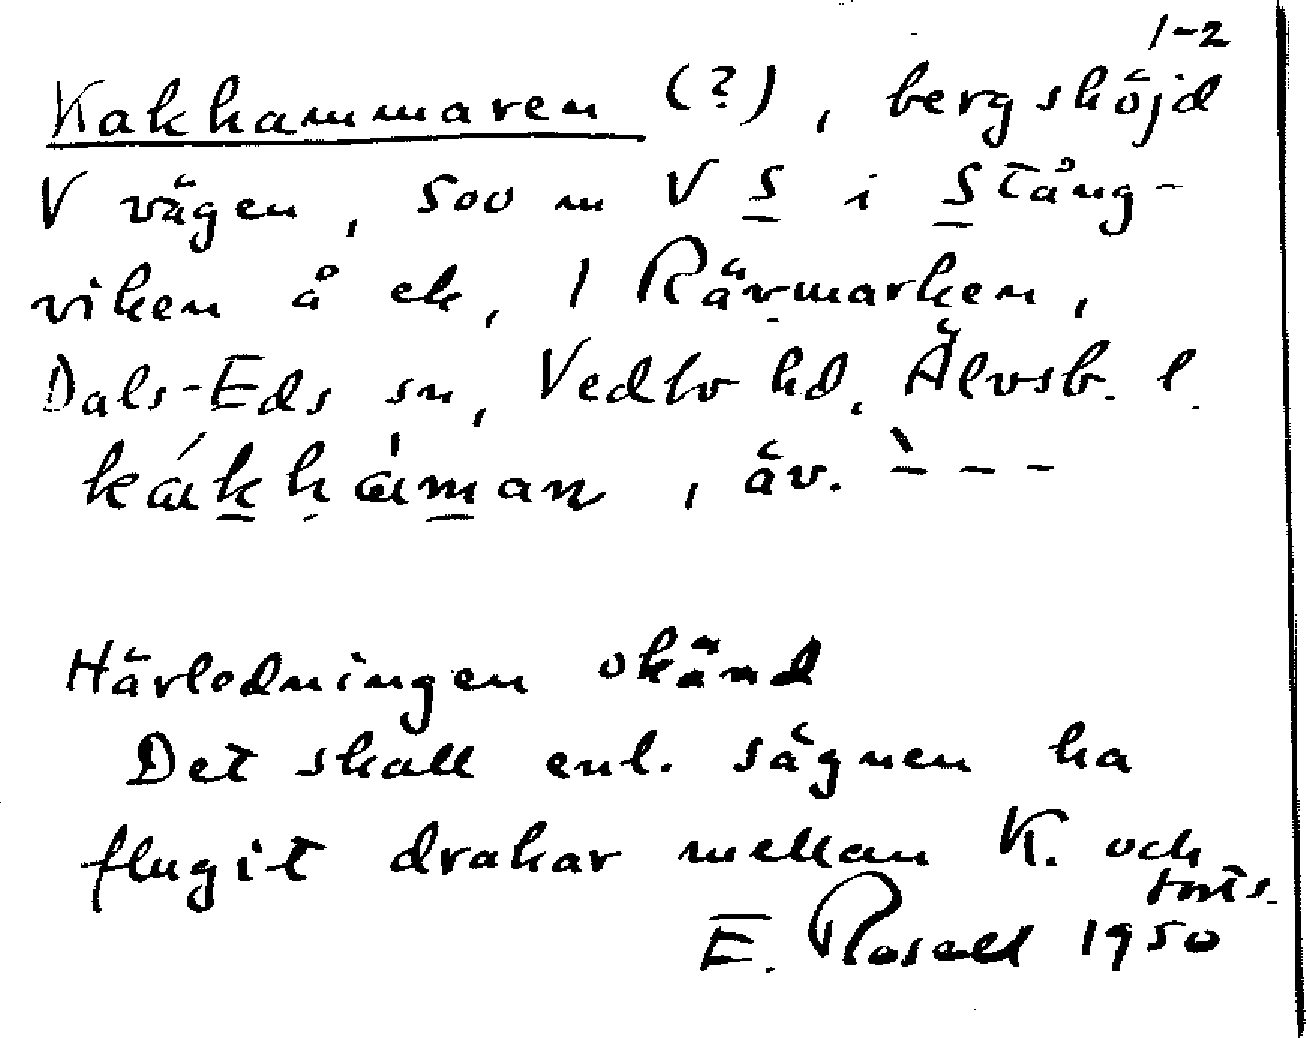 1-2
Kakhammaren (?), bergshöjd
V vägen, 500 m V S i Stång-
viken å ek, 1 Rävmarken,
Dals-Eds sn, Vedbo hd. Älvsb. l.
, äv. `- - -
Härledningen okänd
Det skall enl. sägnen ha
flugit drakar mellan K. och
forts.
E. Rosell 1950